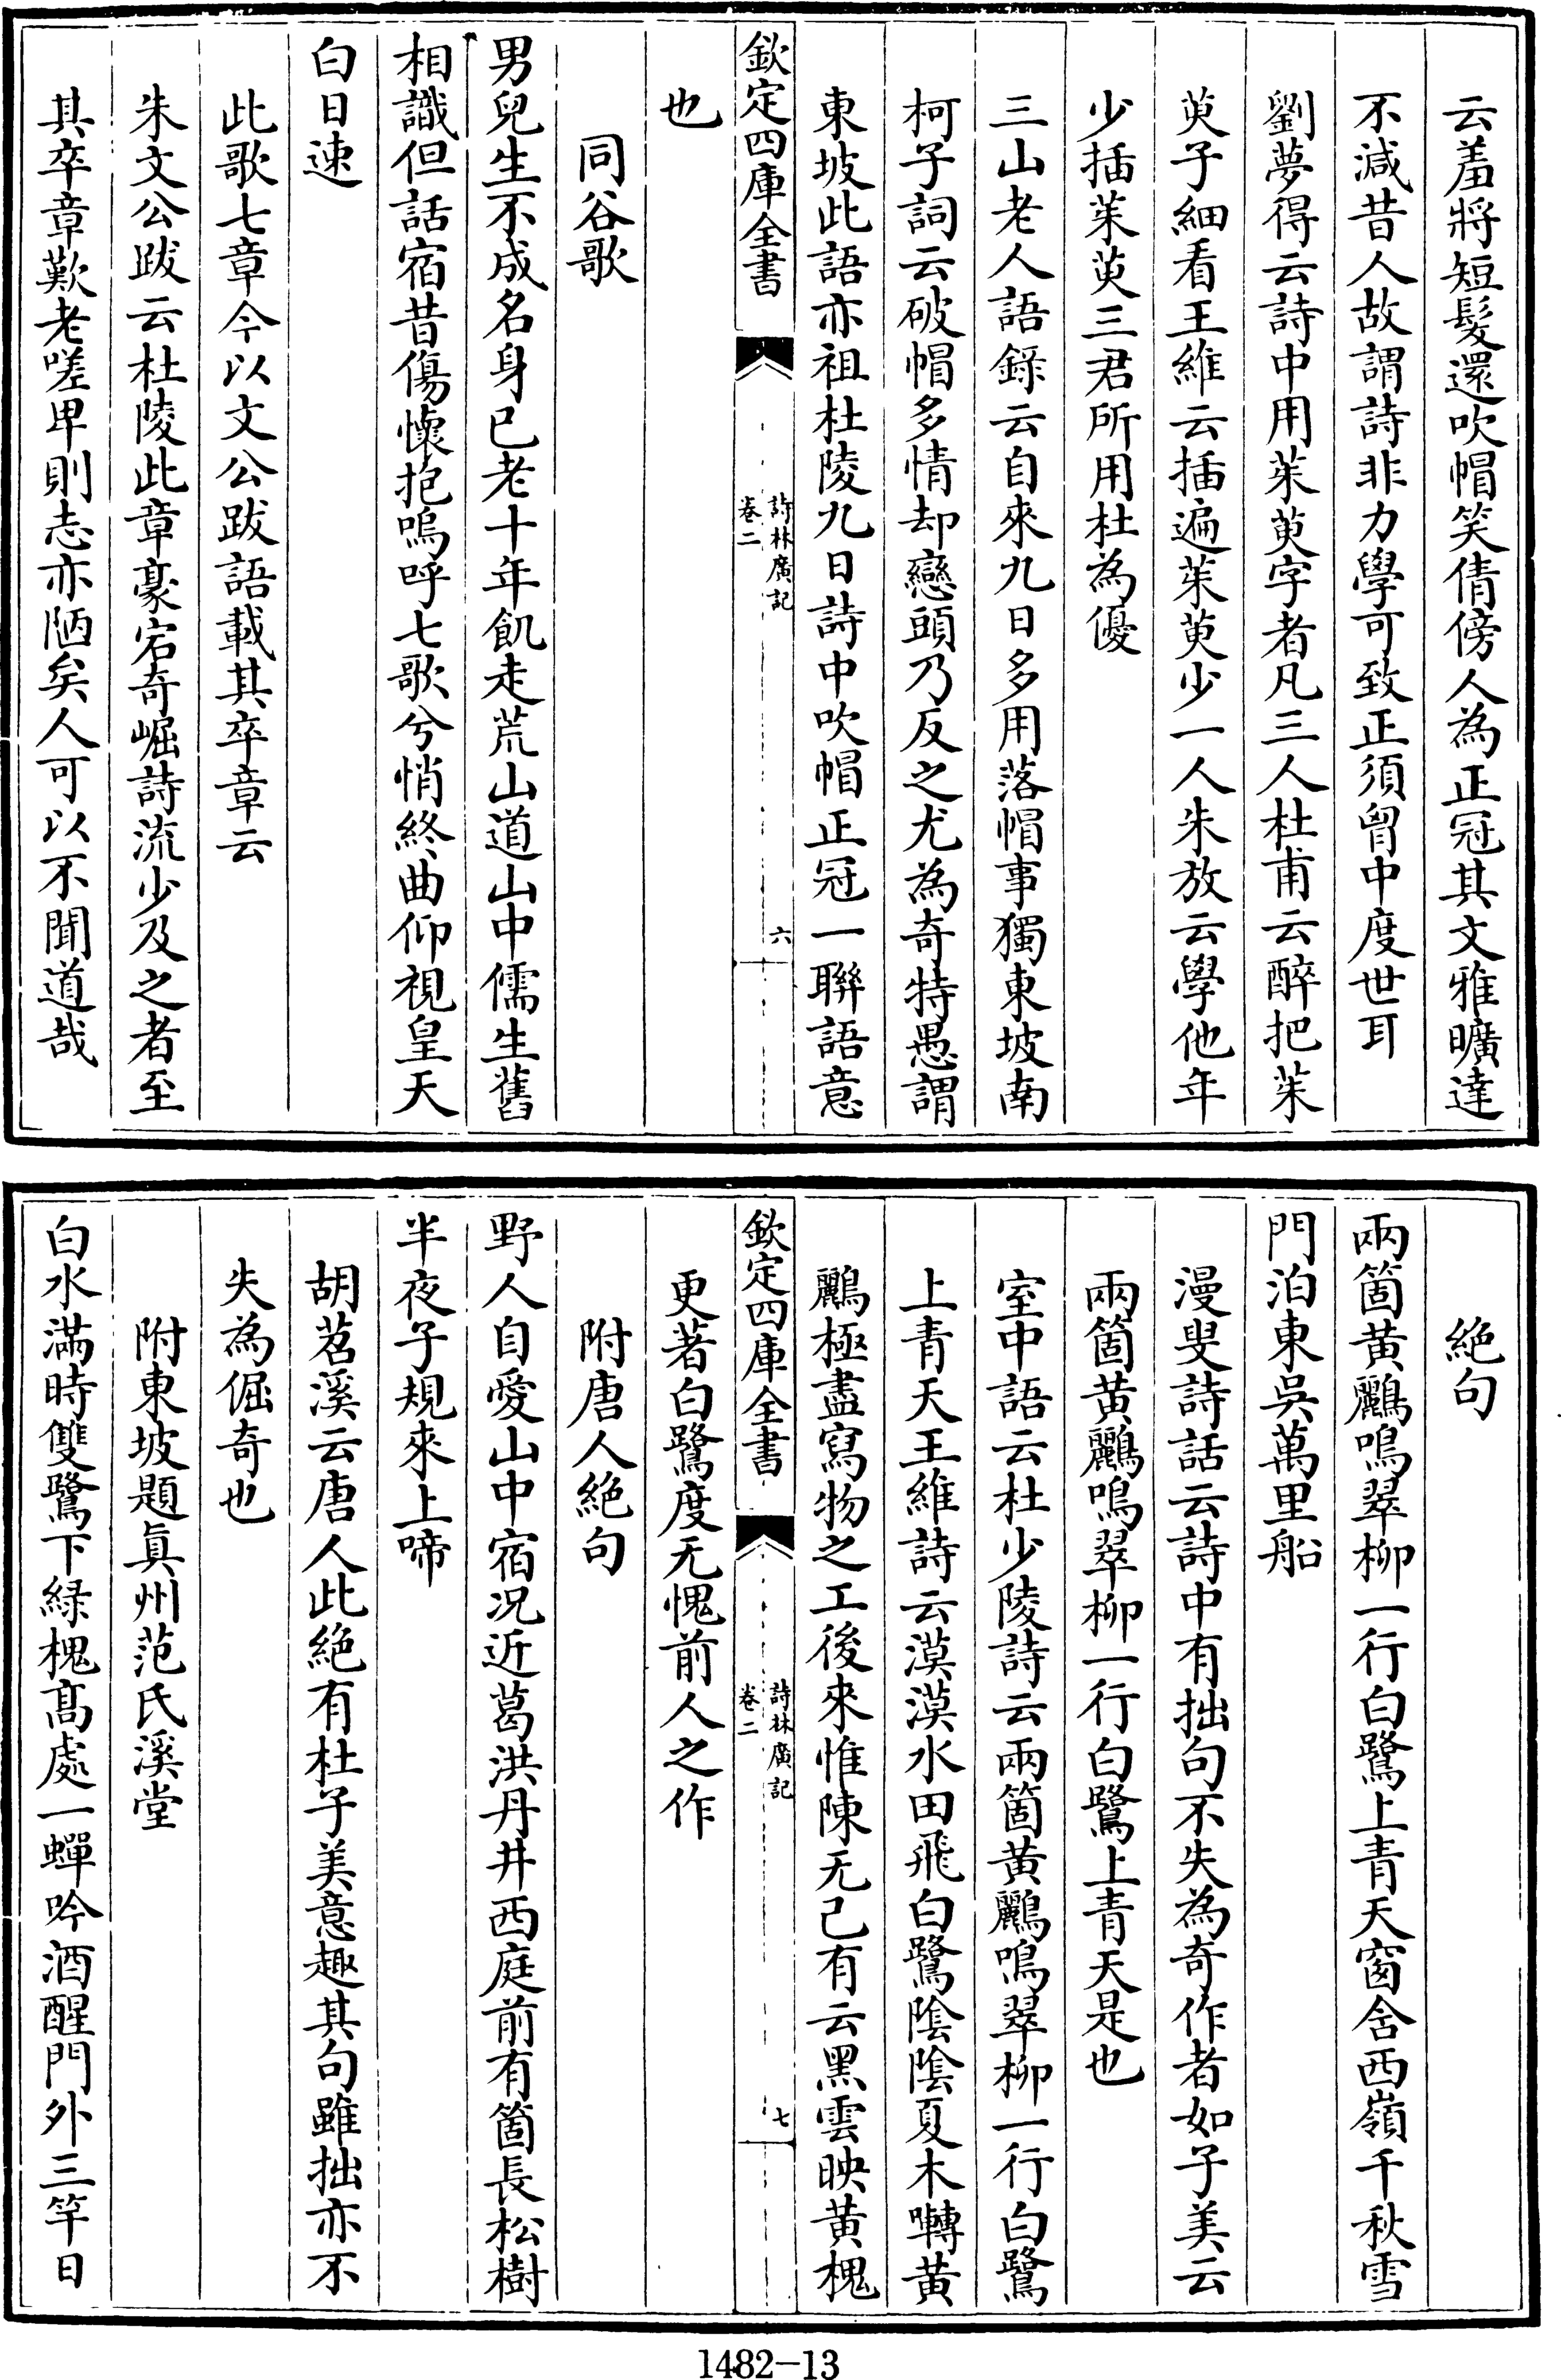 云羞將短髮還吹帽笑倩傍人為正冠其文雅曠達
不減昔人故謂詩非力學可致正須胷中度世耳
劉夢得云詩中用茱萸字者凡三人杜甫云醉把茱
萸子細看王維云插遍茱萸少一人朱放云學他年
少插茱萸三君所用杜為優
三山老人語錄云自來九日多用落帽事獨東坡南
柯子詞云破帽多情却戀頭乃反之尤為奇特愚謂
東坡此語亦祖杜陵九日詩中吹帽正冠一聯語意
欽定四庫全書
詩林廣記
卷二
六
也
同谷歌
男兒生不成名身已老十年飢走荒山道山中儒生舊
相識但話宿昔傷懷抱嗚呼七歌兮悄終曲仰視皇天
白日速
此歌七章今以文公跋語載其卒章云
朱文公跋云杜陵此章豪宕奇崛詩流少及之者至
其卒章歎老嗟卑則志亦陋矣人可以不聞道哉
絕句
兩箇黃鸝鳴翠柳一行白鷺上青天窗含西嶺千秋雪
門泊東吳萬里船
漫叟詩話云詩中有拙句不失為奇作者如子美云
兩箇黃鸝鳴翠柳一行白鷺上青天是也
室中語云杜少陵詩云兩箇黃鸝鳴翠柳一行白鷺
上青天王維詩云漠漠水田飛白鷺陰陰夏木囀黃
鸝極盡寫物之工後來惟陳无己有云黑雲映黃槐
欽定四庫全書
詩林廣記
卷二
七
更著白鷺度无愧前人之作
附唐人絕句
野人自愛山中宿况近葛洪丹井西庭前有箇長松樹
半夜子規來上啼
胡苕溪云唐人此絕有杜子美意趣其句雖拙亦不
失為倔奇也
附東坡題真州范氏溪堂
白水滿時雙鷺下綠槐髙處一蟬吟酒醒門外三竿日
1482-13